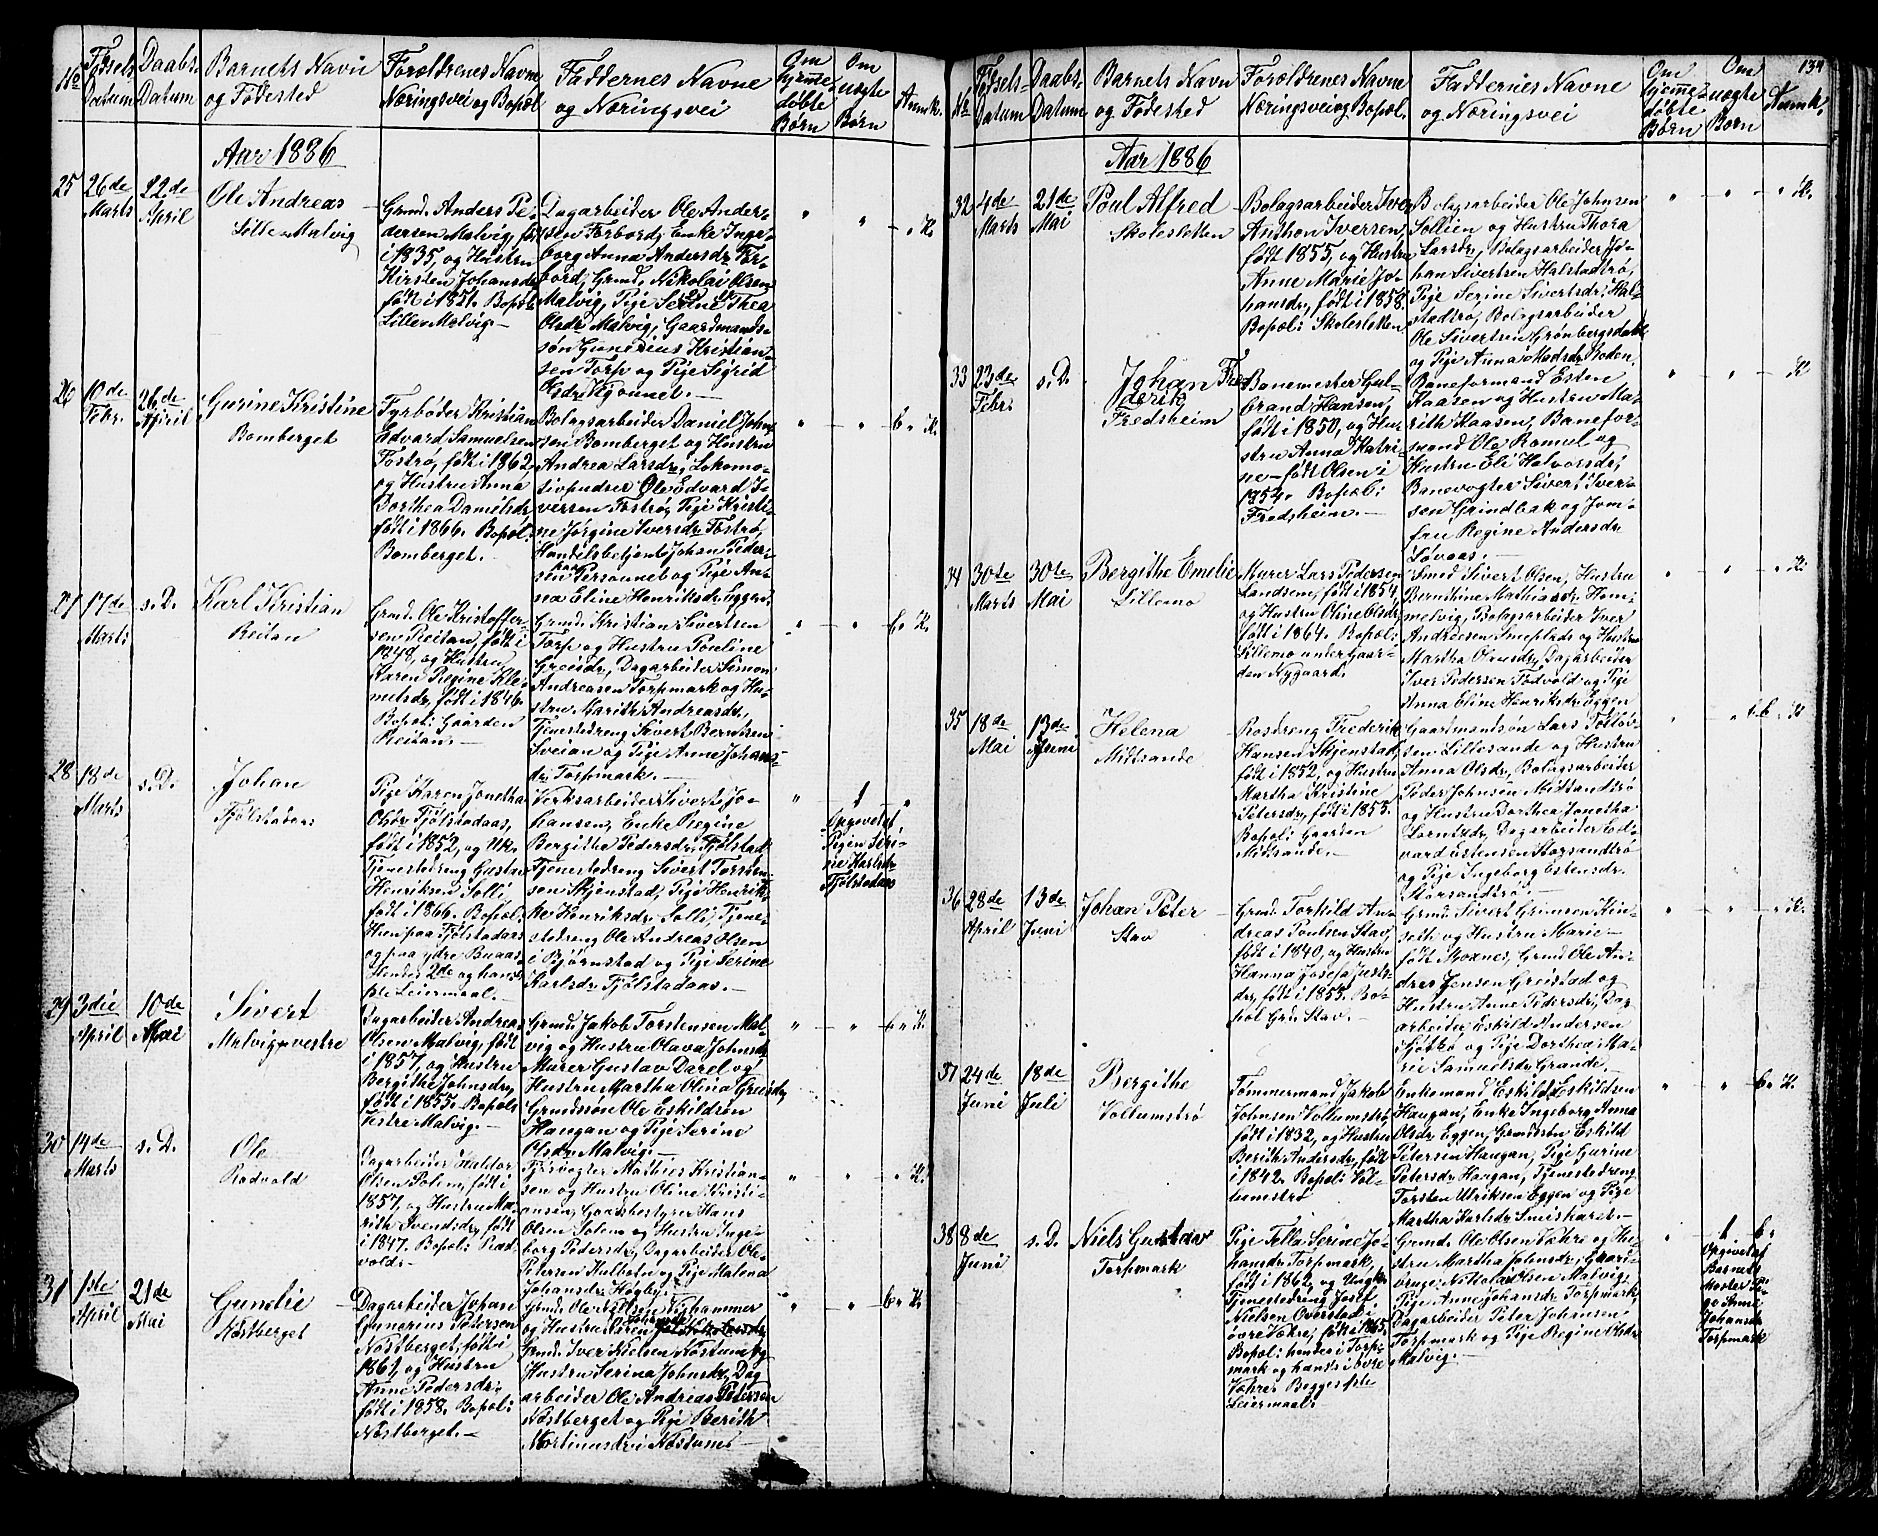 No
Fødsels Datum
Daabs- Datum
Barnets Navn og Fødested
Forældrenes Navne Næringsvei og Bopæl
Faddernes Navne og Næringsvei
Om hjemme- døbte Børn
Om uægte Børn
Anmk.
Aar 1886
25
26de Marts
22de April
Ole Andreas
Lille Malvig
Grmd. Anders Pe-
dersen Malvig, født
i 1835, og Hustru
Kirsten Johansdr
født i 1851. Bopæl:
Lille Malvig.
Dagarbeider Ole Ander-
sen Forbord, Enke Inge-
borg Anna Andersdr For-
bord, Grmd. Nikolai Olsen
Malvig, Pige Serine Thea
Olsdr Malvig, Gaardmands-
søn Gunerius Kristian-
sen Torp og Pige Sigrid
26
10de Febr.
26de April
Gurine Kristine
Bomberget
Fyrbøder Kristian
Edvard Samuelsen
Fostrø, født i 1862,
og Hustru Anna
Dorthea Danielsdr
født i 1866. Bopæl:
Bomberget.
Bolagsarbeider Daniel John-
sen Bomberget og Hustru
Andrea Larsdr, Lokomo-
tivpudser Ole Edvard I-
versen Fostrø, Pige Kristi-
ne Jørgine Iversdr Fostrø,
Handelsbetjent Johan Peder-
sen Personnet og Pige An-
na Eline Henriksdr Eggen.
27
17de Marts
s. D.
Karl Kristian
Reitan
Grmd. Ole Kristoffer-
sen Reitan, født i
1848, og Hustru
Karen Regine Kle-
metsdr, født i 1846.
Bopæl: Gaarden
Reitan.
Grmd. Kristian Sivertsen
Torp og Hustru Pauline
Greisdr, Dagarbeider Simon
Andreasen Torpmark og Hu-
stru Marith Andreasdr,
Tjenestedreng Sivert Berntsen
Sveian og Pige Anne Johans-
dr Torpmark.
28
18de Marts
s. D.
Johan
Fjølstadaas
Pige Karen Jonetha
Olsdr Fjølstadaas,
født i 1852, og Uk.
Tjenestedreng Gustav
Henriksen Solli
født i 1866. Bopæl:
Hun paa Fjølstadaas
og paa ydre Buaas.
Hendes 2de og hans
1ste Leiermaal.
Verksarbeider Sivert Jo-
hansen, Enke Regine
Bergitha Pedersdr Fjølstad
Tjenestedreng Sivert Torsten-
sen Stjenstad, Pige Henrik-
ke Henriksdr Solli, Tjene-
stedreng Ole Andreas Olsen
i Bjørnstad og Pige Serine
Karlsdr Fjølstadaas.
1
Opgivet af
Pigen Seri-
ne Karlsdr
Fjølstadaas
29
3die April
10de Mai
Sivert
Malvig vestre
Dagarbeider Andreas
Olsen Malvig, født
i 1857, og Hustru
Bergithe Johnsdr,
født i 1855. Bopæl:
Vestre Malvig.
Grmd. Jakob Torstensen Mal-
vig og Hustru Olava Johnsdr
Murer Gustav Darel og
Hustru Martha Olina Greisdr,
Grmdssøn Ole Eskildsen
Haugan og Pige Serine
Olsdr Malvig.
30
14de Marts
s. D.
Ole
Rødvold
Dagarbeider Haldor
Olsen Solem, født i
1857, og Hustru Ma-
rith Svendsdr, født
i 1847. Bopæl: Rød-
vold.
Fyrvogter Mathies Kristian-
sen og Hustru Oline Kristi-
ansen, Gaardsbestyrer Hans
Olsen Solem og Hustru Inge-
borg Pedersdr, Dagarbeider Ole
Petersen Hulbotn og Pige Malena
Johansdr Høgby.
31
1ste April
21de Mai
Gunelie
Næstberget
Dagarbeider Johan
Gunerius Pedersen
Næstberget, født i
1861, og Hustru
Anne Pedersdr,
født i 1858. Bopæl:
Næstberget.
Grmd. Ole Olsen Nyhammer
og Hustru
Grmd. Iver Nielsen Næstume og
Hustru Serina Johnsdr, Dag
arbeider Ole Andreas Petersen
Næstberget og Pige Berith
Martinusdr Næstume
134
No
Fødsels- Datum
Daabs- Datum
Barnets Navn og Fødested
Forældrenes Navne Næringsvei og Bopæl.
Faddernes Navne og Næringsvei
Om hjemme- døbte Børn
Om uægte Børn
Anmk.
Aar 1886
32
4de Marts
21de Mai
Poul Alfred
Skolesletten
Bolagsarbeider Iver
Anthon Iversen,
født i 1855, og Hustru
Anne Marie Jo-
hansdr, født i 1858.
Bopæl: Skolesletten
Bolagsarbeider Ole Johnsen
Sollien og Hustru Thora
Larsdr, Bolagsarbeider Jo-
han Sivertsen Halstadtrø,
Pige Serine Sivertsdr Hal-
stadtrø, Bolagsarbeider
Ole Sivertsen Grønbergsdahl
og Pige Anna Madsdr Boden.
33
23de Febr.
s. D.
Johan Fre-
derik
Fredsheim
Banemester Gul-
brand Hansen,
født i 1850, og Hu-
stru Anna Katri-
ne født Olsen i
1854. Bopæl:
Fredsheim.
Baneformand Esten
Haasen og Hustru Ma-
rith Haasen, Banefor-
mand Ole Romul og
Hustru Eli Halvorsdr,
Banevogter Sivert Iver-
sen Grindbak og Jom-
fru Regine Andersdr
Løvaas.
34
30te Marts
30te Mai
Bergithe Emelie
Lillemo
Murer Lars Pedersen
Landsem, født i 1854,
og Hustru Oline Olsdr,
født i 1864. Bopæl:
Lillemo under Gaar-
den Nygaard.
Smed Sivert Olsen, Hustru
Bernthine Mathiasdr Hom-
melvig, Bolagsarbeider Iver
Andreesen Sneplads og Hustru
Martha Olausdr, Dagarbeider
Iver Pedersen Rødvold og Pige
Anna Eline Henriksdr Eggen
35
18de Mai
13de Juni
Helena
Midtsande
Rosdreng Frederik
Hansen Stjenstad,
født i 1852, og Hustru
Martha Kristine
Petersdr, født i 1855.
Bopæl: Gaarden
Midtsande.
Gaardmandssøn Lars Tosten-
sen Lillesande og Hustru
Anna Olsdr, Bolagsarbeider
Peder Johnsen Midtsandtrø
og Hustru Dorthea Jonetha
Larsdr, Dagarbeider Ed-
vard Estensen Storsandtrø
og Pige Ingeborg Estensdr
Storsandtrø.
36
28de April
13de Juni
Johan Peter
Stav
Grmd. Torkild An-
dreas Poulsen Stav,
født i 1840, og Hustru
Hanna Josefa Justs-
dr, født i 1855. Bo-
pæl Grd. Stav.
Grmd. Sivert Grimsen Kin-
seth og Hustru Marie
født Moxnes, Grmd Ole An-
dreas Jensen Greistad og
Hustru Anne Pedersdr, Dag
arbeider Eskild Andersen
Sjøtrø og Pige Dorthea Ma-
rie Samuelsdr Grande.
37
24de Juni
18de Juli
Bergithe
Vollumstrø
Tømmermand Jakob
Johnsen Vollumstrø,
født i 1832, og Hustru
Berith Andersdr, født
i 1842. Bopæl: Vol-
lumstrø
Enkemand Eskild Eskildsen
Haugan, Enke Ingeborg Anna
Olsdr Eggen, Grmdssøn Eskild
Petersen Haugan, Pige Gurine
Petersdr Haugan, Tjenestedreng
Torsten Ulriksen Eggen og Pige
Martha Karlsdr Smiskaret.
38
8de Juni
s. D.
Niels Gustav
Torpmark
Pige Pella Serine Jo-
hansdr Torpmark,
født i 1862, og Ungk.
Tjenestedreng Josef
Nielsen Overstad i
øvre Være, født i 1865.
Bopæl: hendes i Torp-
mark og hands i øvre
Være. Begges 1ste
Leiermaal.
Grmd. Ole Olsen Være og Hu-
stru Martha Johnsdr, Gaard-
bruger Nikolai Olsen Malvig,
Pige Anne Johansdr Torpmark
Dagarbeider Peter Johansen
Torpmark og Pige Regine Olsdr
Malvig.
1
Opgivet af
Barnets
Moster Pi-
ge Anne
Johansdr
Torpmark